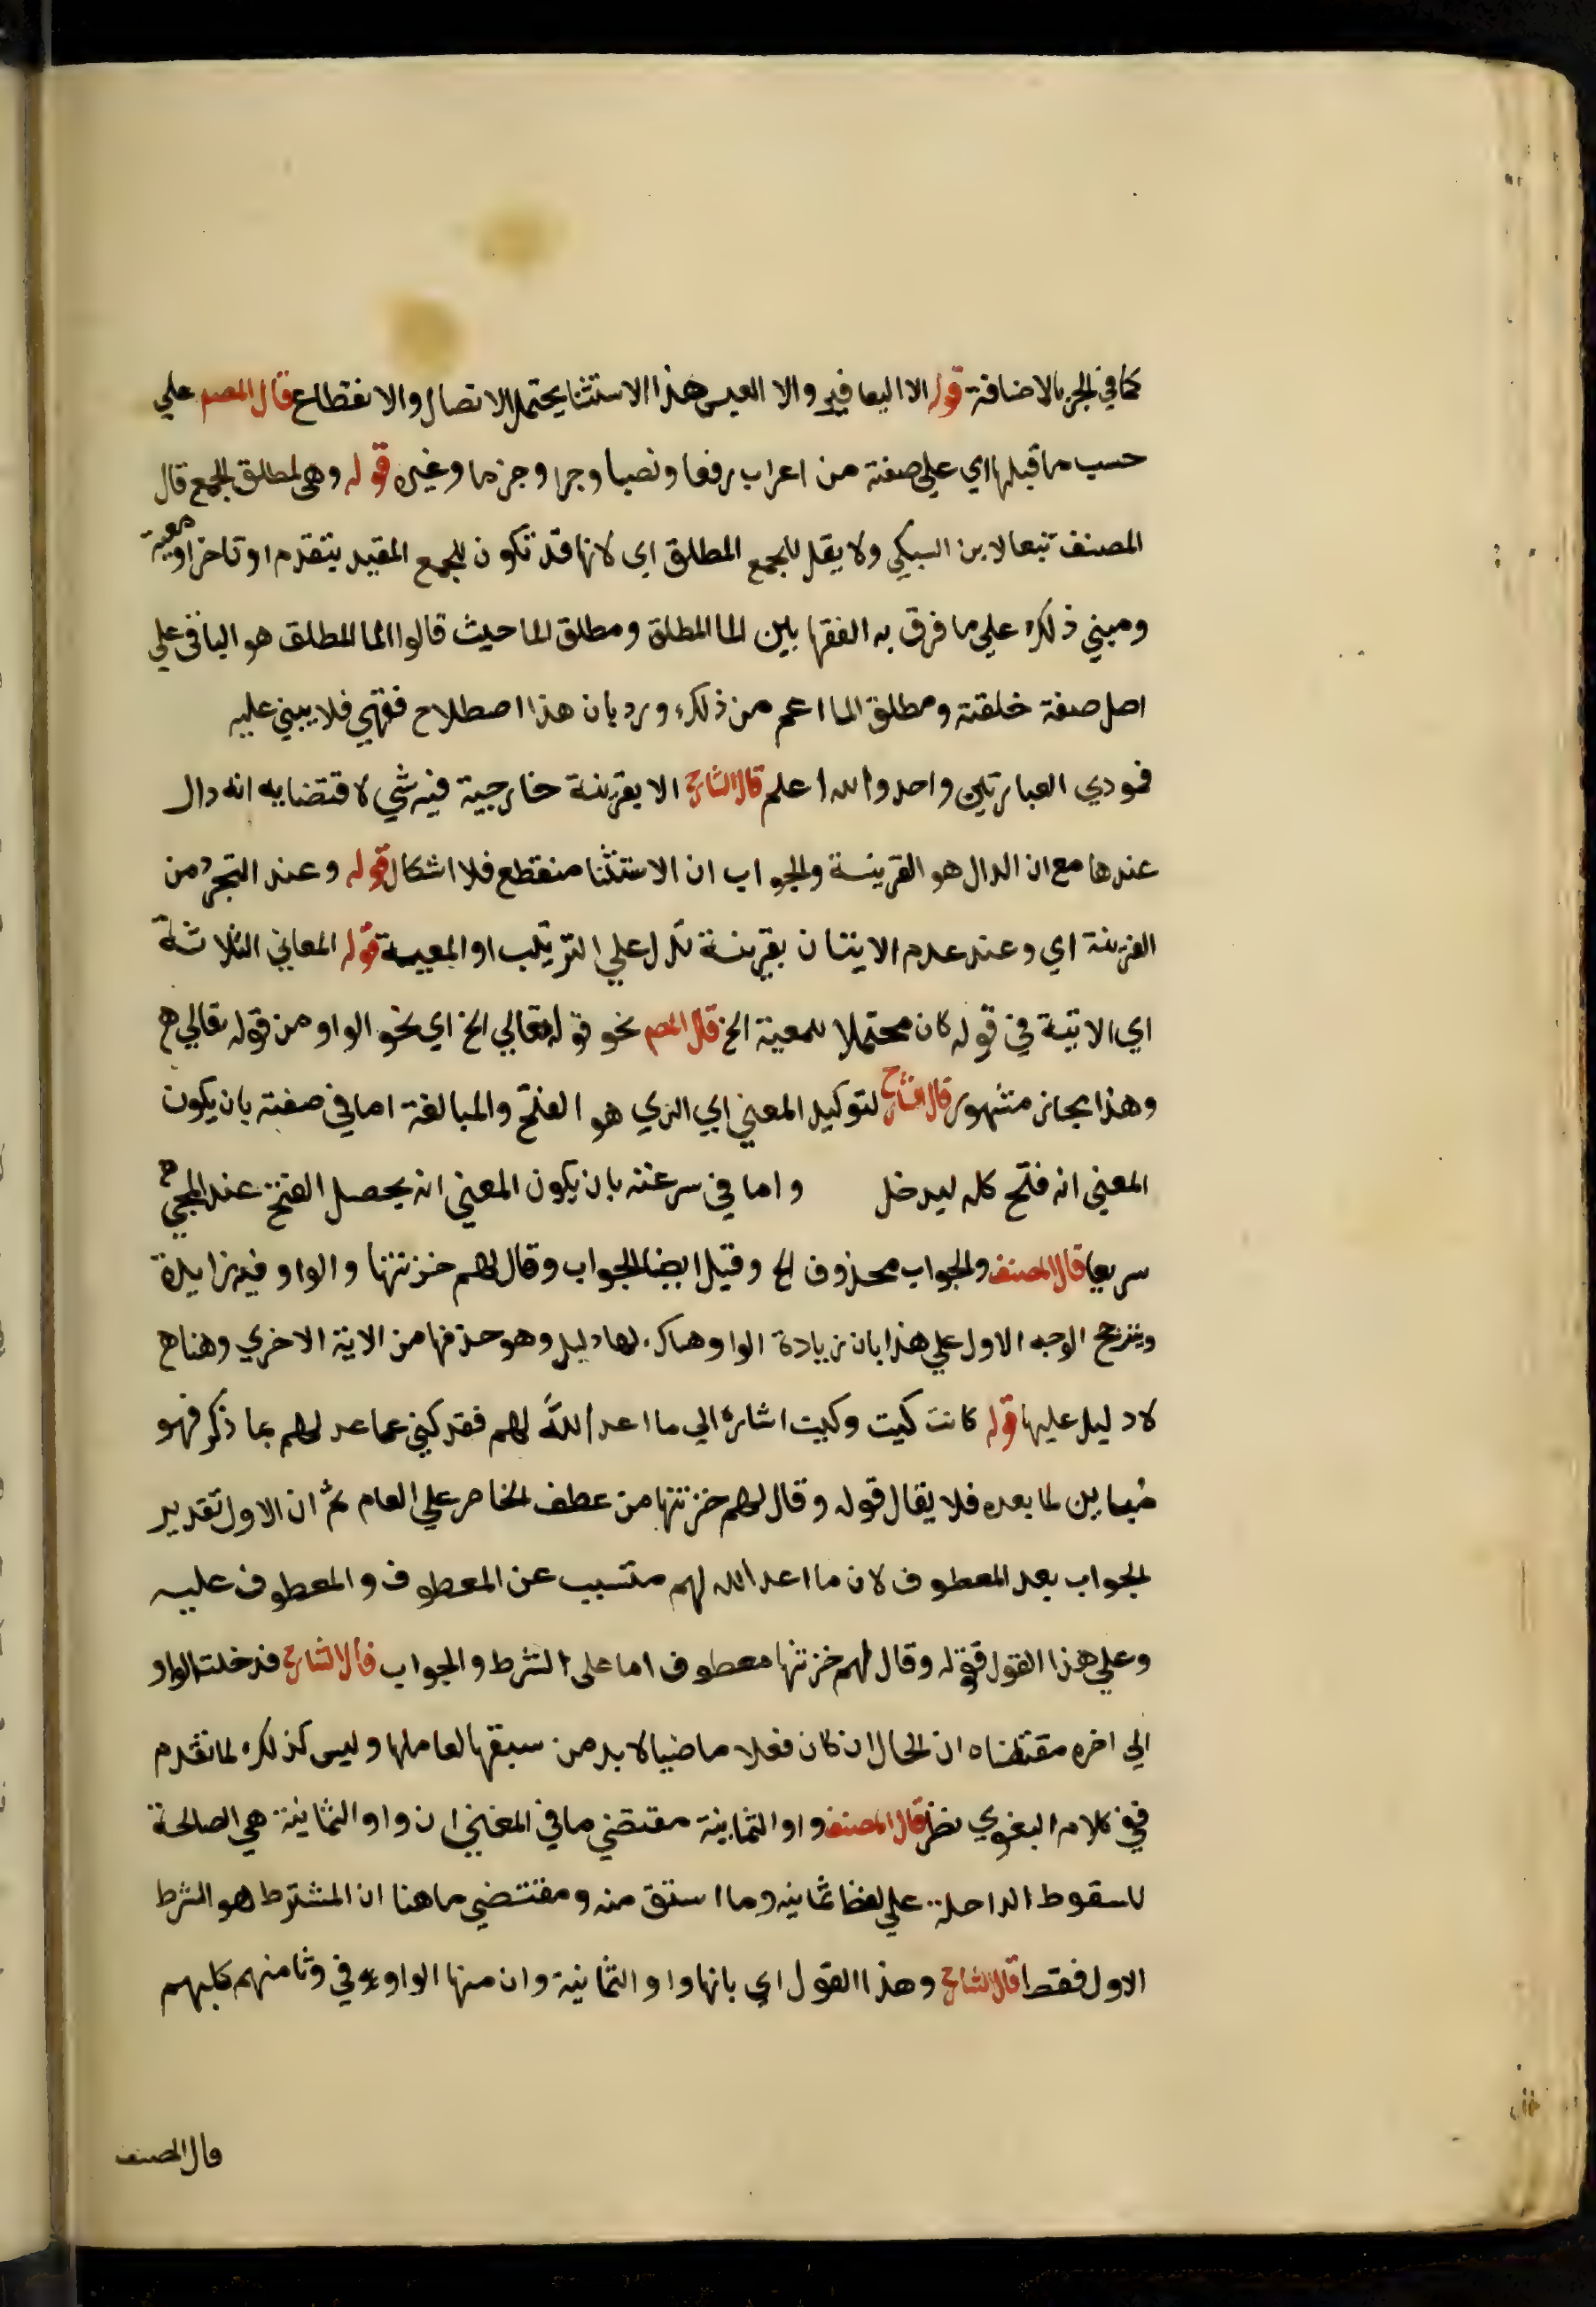 كما في الجر بالاضافة قوله الا اليعافير والا العيس هذا الاستثنا يحتمل الاتصال والانقطاع قال المصـ علي
حسب ما قبلها اي علي صفته من اعراب رفعا ونصبا وجرا وجزما وغيره قوله وهي لمطلق الجمع قال
المصنف تبعا لابن السبكي ولا يقل للجمع المطلق اي لانها قد تكون للجمع المقيد بتقدم او تاخر او معية
ومبني ذلك علي ما فرق به الفقها بين الما المطلق ومطلق الما حيث قالوا الما المطلق هو الباقي علي
اصل صفة خلقته ومطلق الما اعم من ذلك ورد بان هذا اصطلاح فقهي فلا يبني عليه
فمودي العبارتين واحد والله اعلم قال الشارح الا بقرينة خارجية فيه شي لاقتضايه انه دال
عندها مع ان الدال هو القرينة والجواب ان الاستثنا منقطع فلا اشكال قوله وعند التجرد من
القرينة اي وعند عدم الاتيان بقرينة تدل علي الترتيب او المعية قوله المعاني الثلاثة
اي الاتية في قوله كان محتملا للمعية الخ قال المصـ نحو قوله تعالي الخ اي نحو الواو من قوله تعالي
وهذا مجاز مشهور قال الشارح لتوكيد المعني اي الذي هو الفتح والمبالغة اما في صفته بان يكون
المعني انه فتح كله ليدخل واما في سرعته بان يكون المعني انه يحصل الفتح عند المجي
سريعا قال المصنف والجواب محذوف الخ وقيل ايضا الجواب وقال لهم خزنتها والواو فيه زايدة
ويترجح الوجه الاول علي هذا بان زيادة الواو هناك لها دليل وهو حذفها من الاية الاخري وهنا
لا دليل عليها قوله كانت كيت وكيت اشارة الي ما اعد الله لهم فقد كني عما عد لهم بما ذكر فهو
مباين لما بعده فلا يقال قوله وقال لهم خزنتها من عطف الخاص علي العام ثم ان الاول تقدير
الجواب بعد المعطوف لان ما اعد الله لهم متسبب عن المعطوف والمعطوف عليه
وعلي هذا القول فقوله وقال لهم خزنتها معطوف اما على الشرط والجواب قال الشارح فدخلت الواو
الي اخره مقتضاه ان الحال ان كان فعلا ماضيا لا بد من سبقها لعاملها وليس كذلك لما تقدم
ففي كلام البغوي نظر قال المصنف واو الثمانية مقتضي ما في المغني ان واو الثمانية هي الصالحة
للسقوط الداخلة علي لفظ ثمانيه وما اشتق منه ومقتضي ما هنا ان المشترط هو الشرط
الاول فقط قال الشارح وهذا القول اي بانها واو الثمانية وان منها الواو في وثامنهم كلبهم
قال المصنف